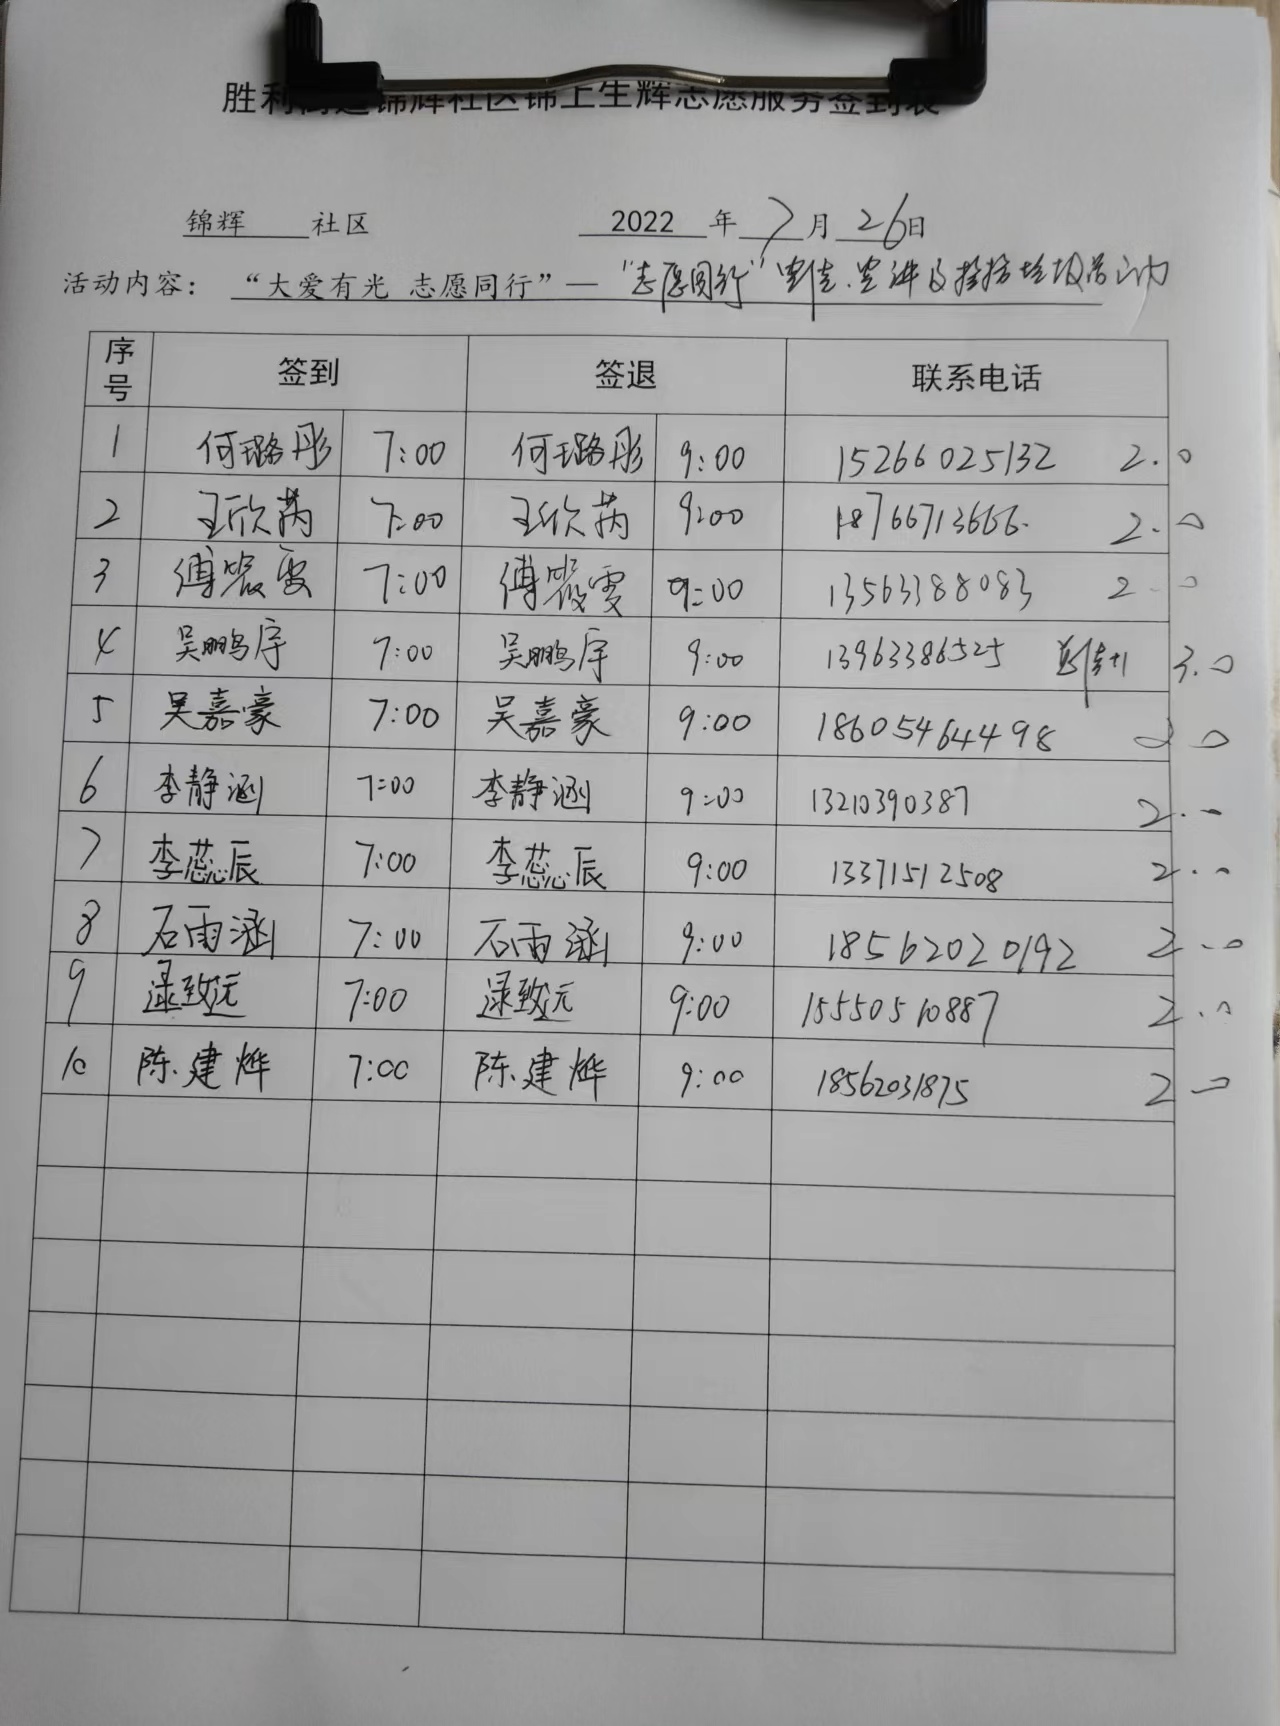 胜利街道锦辉社区锦上生辉志愿服务签到表
锦辉 社区 2022 年 7 月 26 日
活动内容： “大爱有光 志愿同行”— “志愿同行” 宣讲及捡拾垃圾活动
序号 签到 签退 联系电话
1 何璐彤 7:00 何璐彤 9:00 15266025132 2.0
2 王欣苒 7:00 王欣苒 9:00 18766713666. 2.0
3 傅 雯 7:00 傅 雯 9:00 13563388083 2.0
4 吴鹏宇 7:00 吴鹏宇 9:00 13963386525 +1 3.0
5 吴嘉豪 7:00 吴嘉豪 9:00 18605464498 2.0
6 李静涵 7:00 李静涵 9:00 13210390387 2.0
7 李蕊辰 7:00 李蕊辰 9:00 13371512508 2.0
8 石雨涵 7:00 石雨涵 9:00 18562020192 2.0
9 逯致远 7:00 逯致远 9:00 15550510887 2.0
10 陈建烨 7:00 陈建烨 9:00 18562031875 2.0